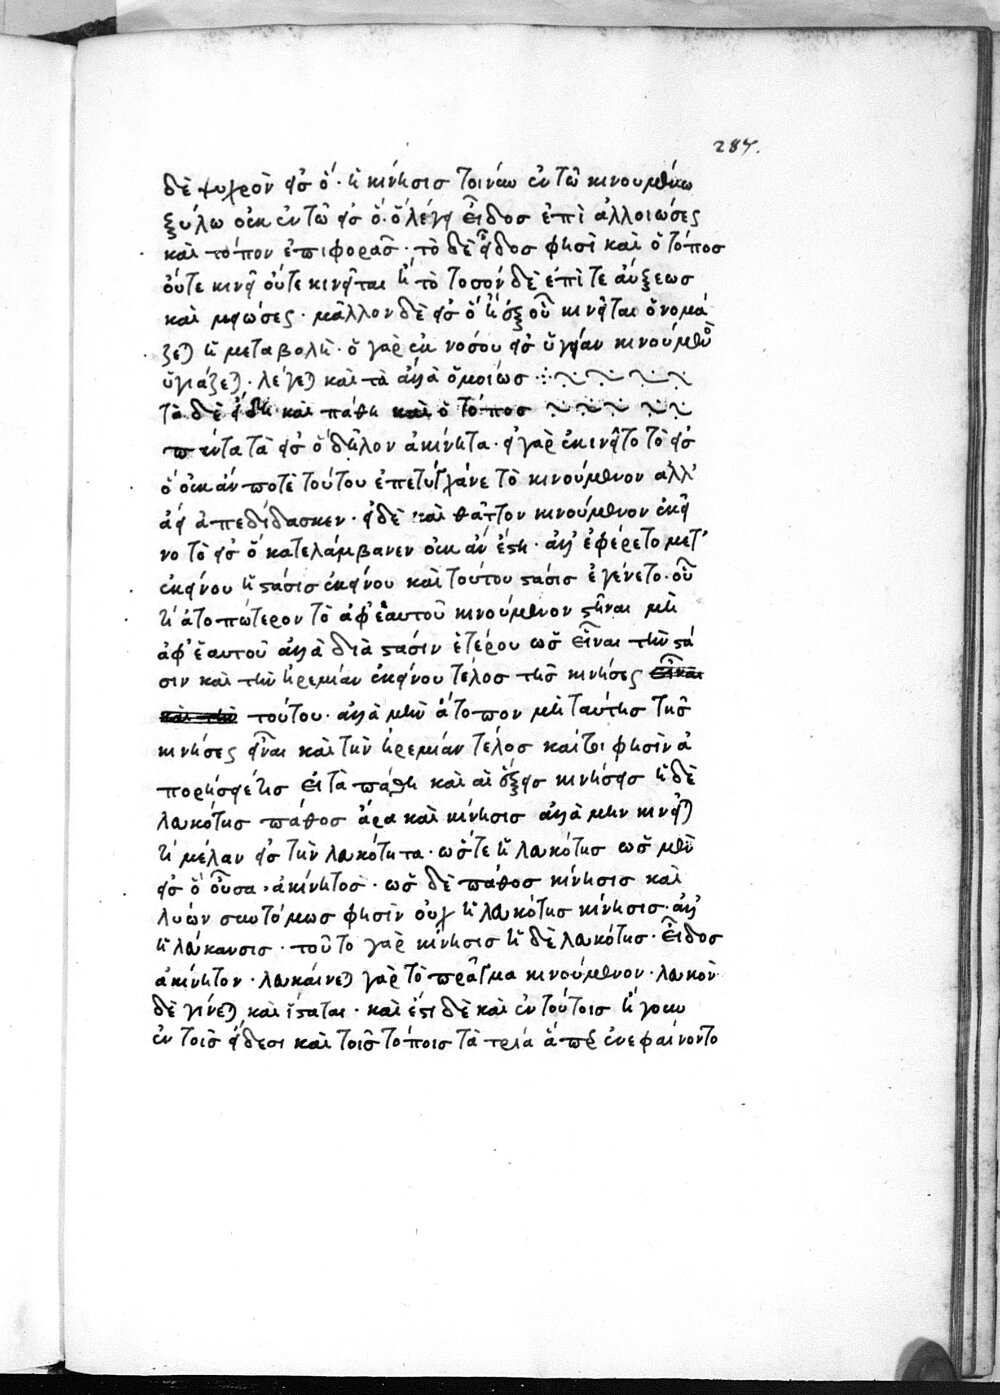 287.
δὲ ψυχρὸν εἰς ὅ · ἡ κίνησις τοίνυν ἐν τῶ κινουμένω
ξύλω οὐκ ἐν τῶ εἰς ὅ · ὃ λέγει εἶδος ἐπὶ ἀλλοιώσεως
καὶ τόπον ἐπιφορᾶς · τὸ δὲ εἶδος φησὶ καὶ ὁ τόπος
οὔτε κινεῖ οὔτε κινεῖται ἢ τὸ τοσόνδε ἐπί τε αὐξεως
καὶ μειώσεως · μᾶλλον δὲ εἰς ὃ ἢ ἐξ οὗ κινεῖται ὀνομά
ζεται ἡ μεταβολὴ · ὁ γὰρ ἐκ νόσου εἰς ὑγείαν κινούμενος
ὑγιάζεται · λέγεται καὶ τὰ ἄλλα ὁμοίως
τὰ δὲ εἴδη καὶ πάθη καὶ ὁ τόπος
πάντα τὰ εἰς ὃ δῆλον ἀκίνητα · εἰ γὰρ ἐκινεῖτο τὸ εἰς
ὃ οὐκ ἄν ποτὲ τούτου ἐπετύγχανε τὸ κινούμενον ἀλλ'
ἀεὶ ἀπεδίδασκεν · εἰ δὲ καὶ θᾶττον κινούμενον ἐκεῖ
νο τὸ εἰς ὃ κατελάμβανεν οὐκ ἂν ἔστη · ἀλλ' ἐφέρετο μετ'
ἐκείνου ἡ στάσις ἐκείνου καὶ τούτου στάσις ἐγένετο · οὗ
τί ἀτοπώτερον τὸ ἀφ' ἑαυτοῦ κινούμενον στῆναι μὴ
ἀφ' ἑαυτοῦ ἀλλὰ διὰ στάσιν ἑτέρου ὡς εἶναι τὴν στά
σιν καὶ τὴν ἠρεμίαν ἐκείνου τέλος τῆς κινήσεως εἶναι
καὶ τὴν τούτου · ἀλλὰ μὴν ἄτοπον μὴ ταύτης τῆς
κινήσεως εἶναι καὶ τὴν ἠρεμίαν τέλος καίτοι φησὶν ἀ
πορήσειέ τις εἰ τὰ πάθη καὶ αἱ ἕξεις κινήσεις ἡ δὲ
λευκότης πάθος ἄρα καὶ κίνησις ἀλλὰ μὴν κινεῖται
τί μέλαν εἰς τὴν λευκότητα · ὥστε ἡ λευκότης ὡς μὲν
εἰς ὃ οὖσα ἀκίνητος · ὡς δὲ πάθος κίνησις καὶ
λύων συντόμως φησὶν οὐχ ἡ λευκότης κίνησις · ἀλλ'
ἡ λεύκανσις · τοῦτο γὰρ κίνησις ἡ δὲ λευκότης · εἶδος
ἀκίνητον · λευκαίνεται γὰρ τὸ πρᾶγμα κινούμενον · λευκὸν
δὲ γίνεται καὶ ἵσταται · καὶ ἔστι δὲ καὶ ἐν τούτοις ἤγουν
ἐν τοῖς εἴδεσι καὶ τοῖς τόποις τὰ τρία ἅπερ ἐνεφαίνοντο